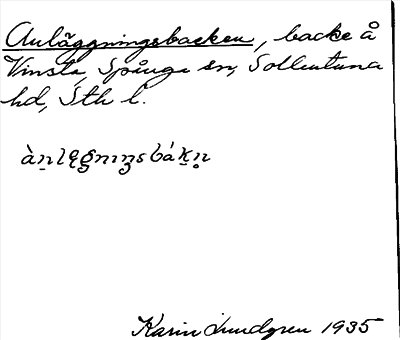 Anläggningsbacken, backe å
Vinsta, Spånga sn, Sollentuna
hd, Sth l.
àn̠lęgnɩŋsbák̠n̥
Karin Lundgren 1935